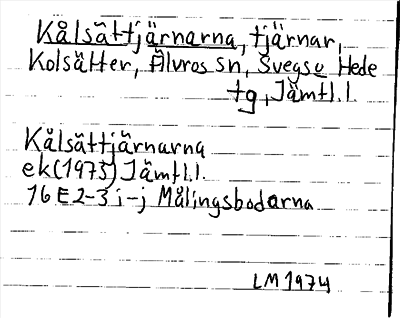 Kålsättjärnarna, tjärnar,
Kolsätter, Älvros sn, Svegs o Hede
tg, Jämtl. l.
Kålsättjärnarna
ek (1973) Jämtl. l.
16 E 2-3 i-j Målingsbodarna
LM 1974